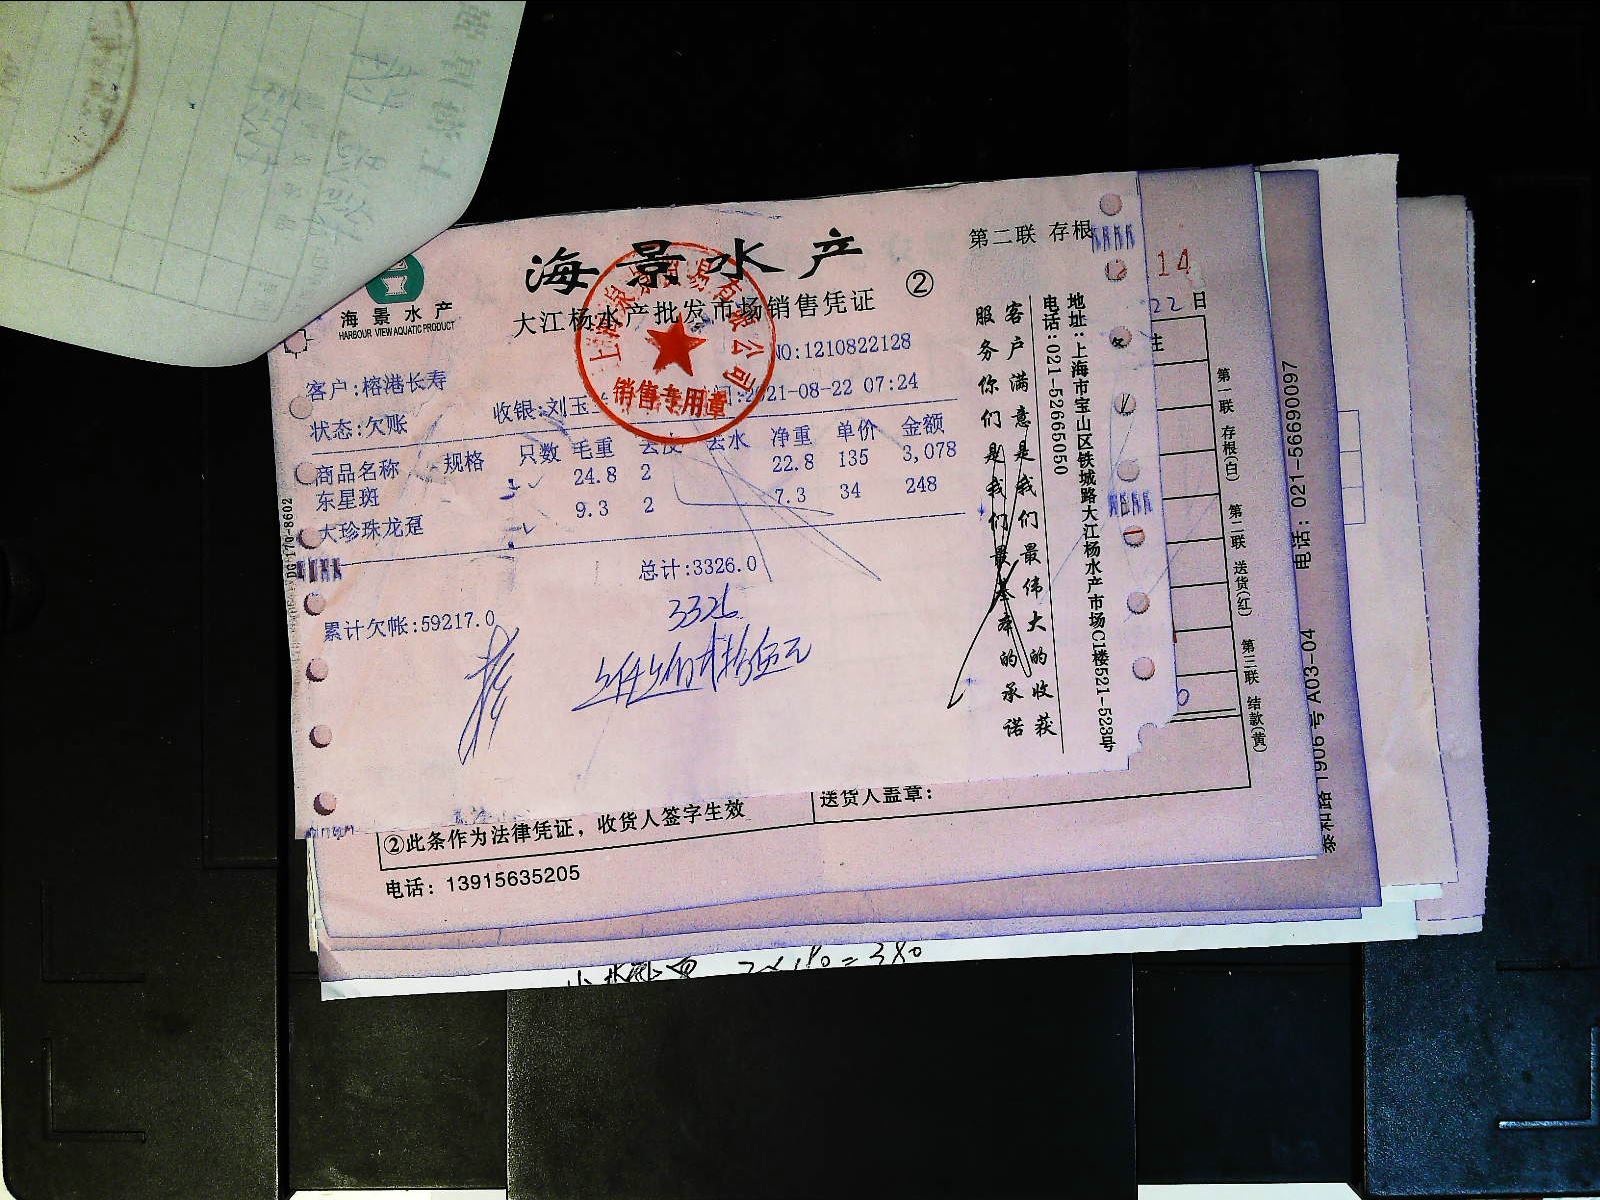 海景水产
第二联 存根
②
海景水产
HARBOUR VIEW AQUATIC PRODUCT
大江杨水产批发市场销售凭证
NO:1210822128
客户:榕港长寿
状态:欠账
收银:刘玉
2021-08-22 07:24
销售专用章
商品名称 规格 只数 毛重 去皮 去水 净重 单价 金额
东星斑 24.8 2 22.8 135 3,078
大珍珠龙趸 9.3 2 7.3 34 248
总计:3326.0
累计欠帐:59217.0
3326
客户满意是我们最伟大的收获
服务你们是我们最基本的承诺
地址:上海市宝山区铁城路大江杨水产市场C1楼521-523号
电话:021-52665050
14
22日
第一联 存根(白) 第二联 送货(红) 第三联 结款(黄)
送货人盖章:
②此条作为法律凭证，收货人签字生效
电话: 13915635205
电话: 021-56690097
1906号 A03-04
=380